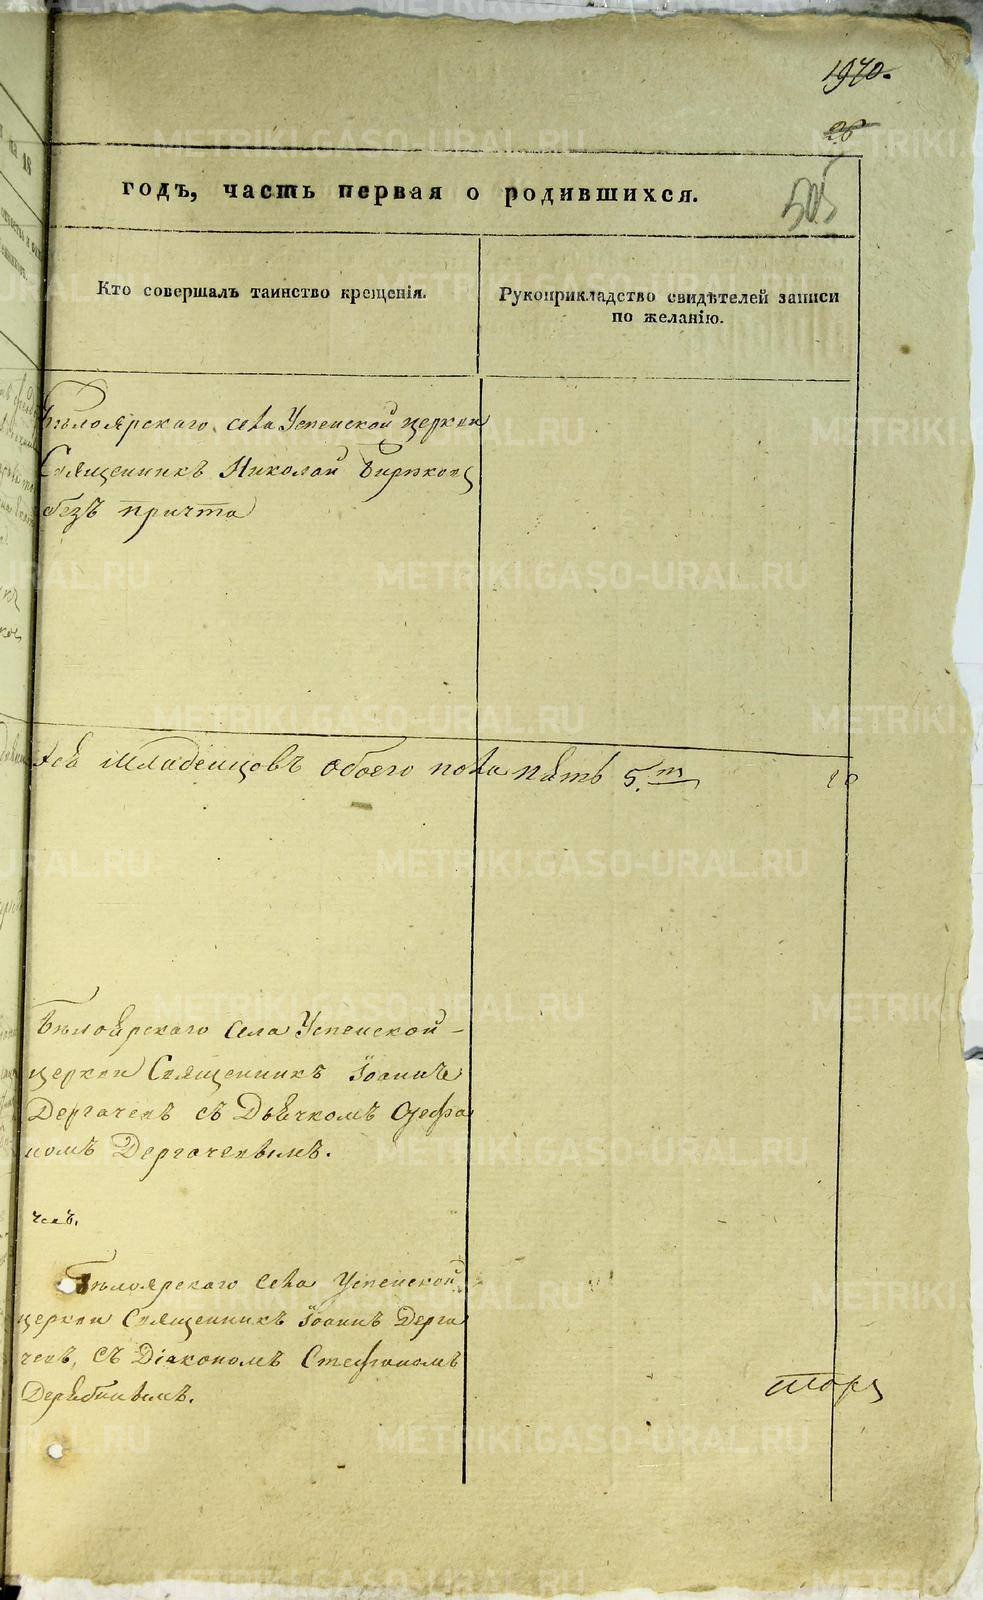 1970.
26
505
годъ, часть первая о родившихся.
Кто совершалъ таинство крещенія.
Рукоприкладство свидѣтелей записи
по желанію.
Бѣлоярскаго села Успенской церкви
Священникъ Николай
безъ причта
младенцовъ обоего пола пять 5.
Бѣлоярскаго села Успенской
церкви Священникъ Іоаннъ
Дергачевъ съ Дьячкомъ Стефа
номъ Дергачевымъ.
Бѣлоярскаго села Успенской
церкви Священникъ Іоаннъ Дерга
чевъ, съ Діакономъ Стефаномъ
METRIKI.GASO-URAL.RU